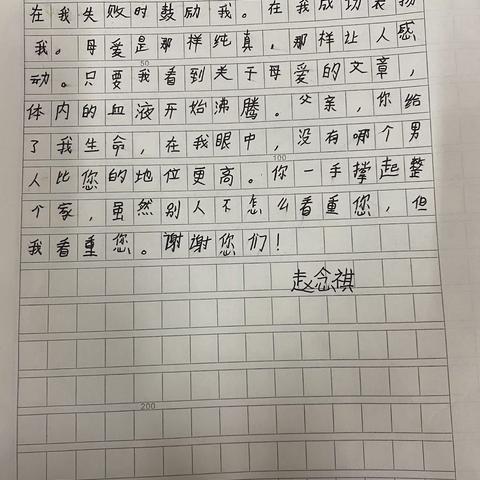 在我失败时鼓励我。在我成功表扬
我。母爱是那样纯真，那样让人感
50
动。只要我看到关于母爱的文章，
体内的血液开始沸腾。父亲，你给
了我生命，在我眼中，没有哪个男
100
人比您的地位更高。你一手撑起整
个家，虽然别人不怎么看重您，但
我看重您。谢谢您们！
赵念祺
200